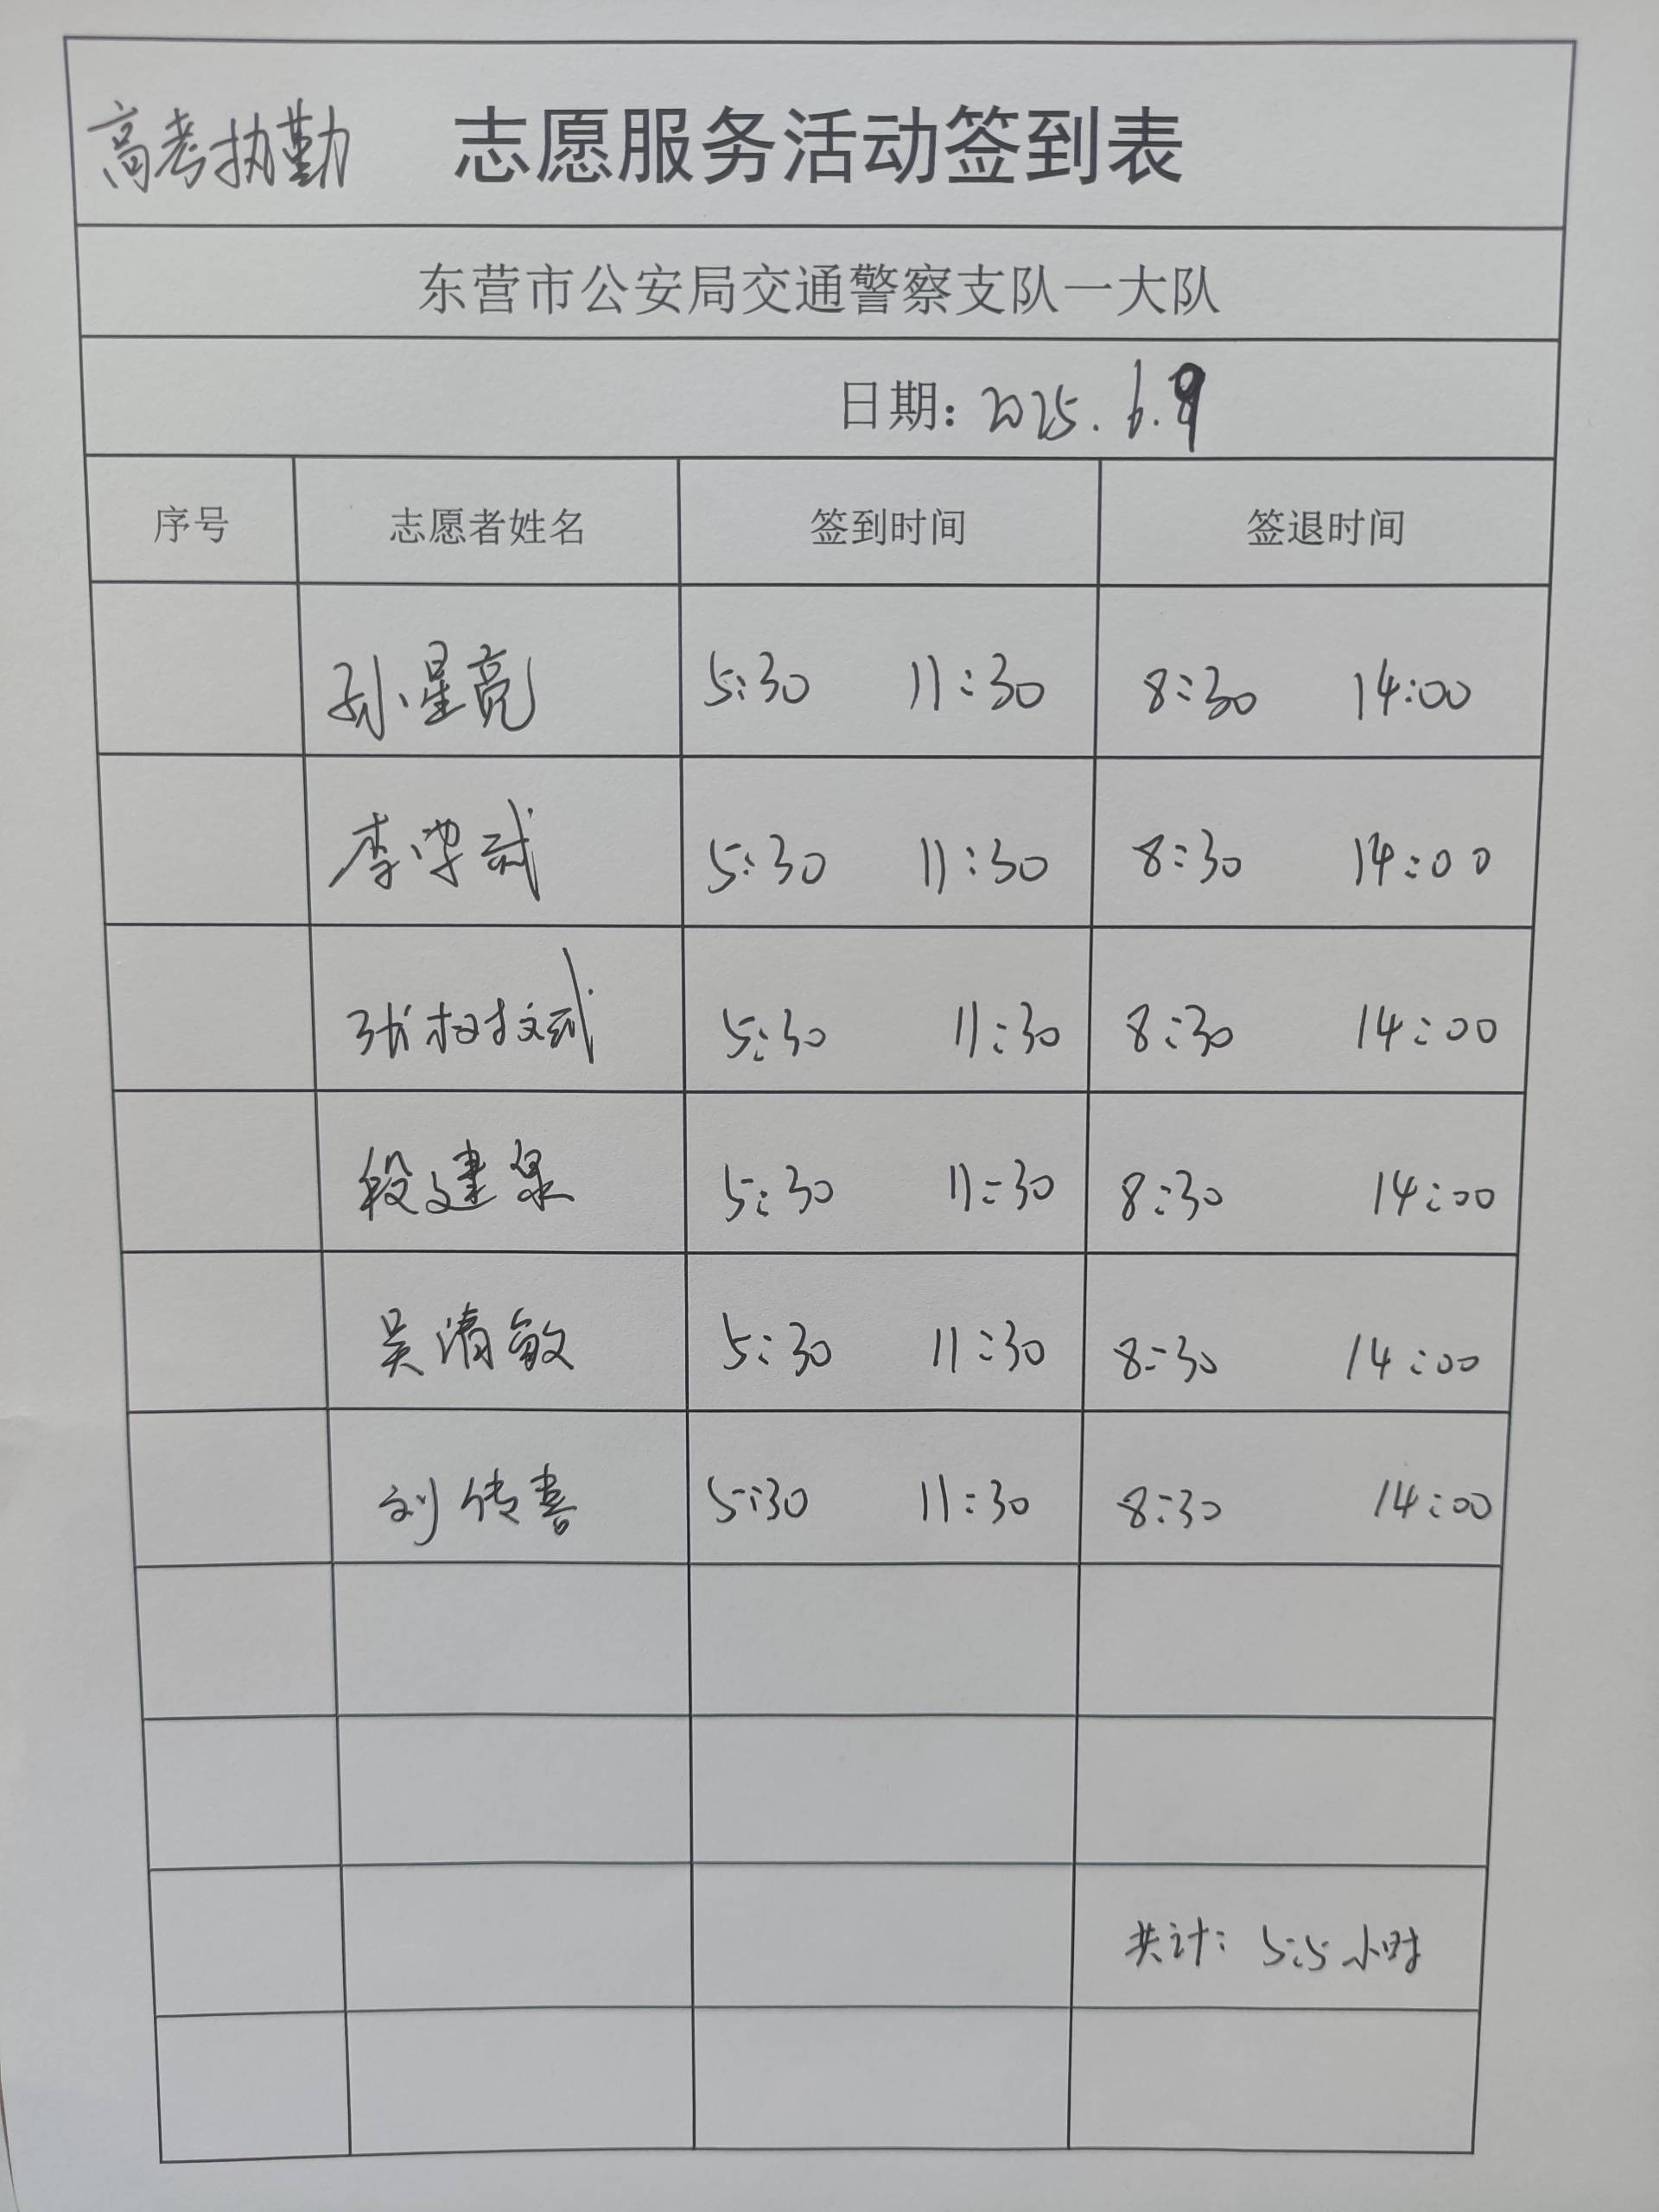 高考执勤 志愿服务活动签到表
东营市公安局交通警察支队一大队
日期：2025.6.9
序号 志愿者姓名 签到时间 签退时间
孙星亮 5:30 11:30 8:30 14:00
李学斌 5:30 11:30 8:30 14:00
张树斌 5:30 11:30 8:30 14:00
段建泉 5:30 11:30 8:30 14:00
吴清敏 5:30 11:30 8:30 14:00
刘传喜 5:30 11:30 8:30 14:00
共计：5.5小时